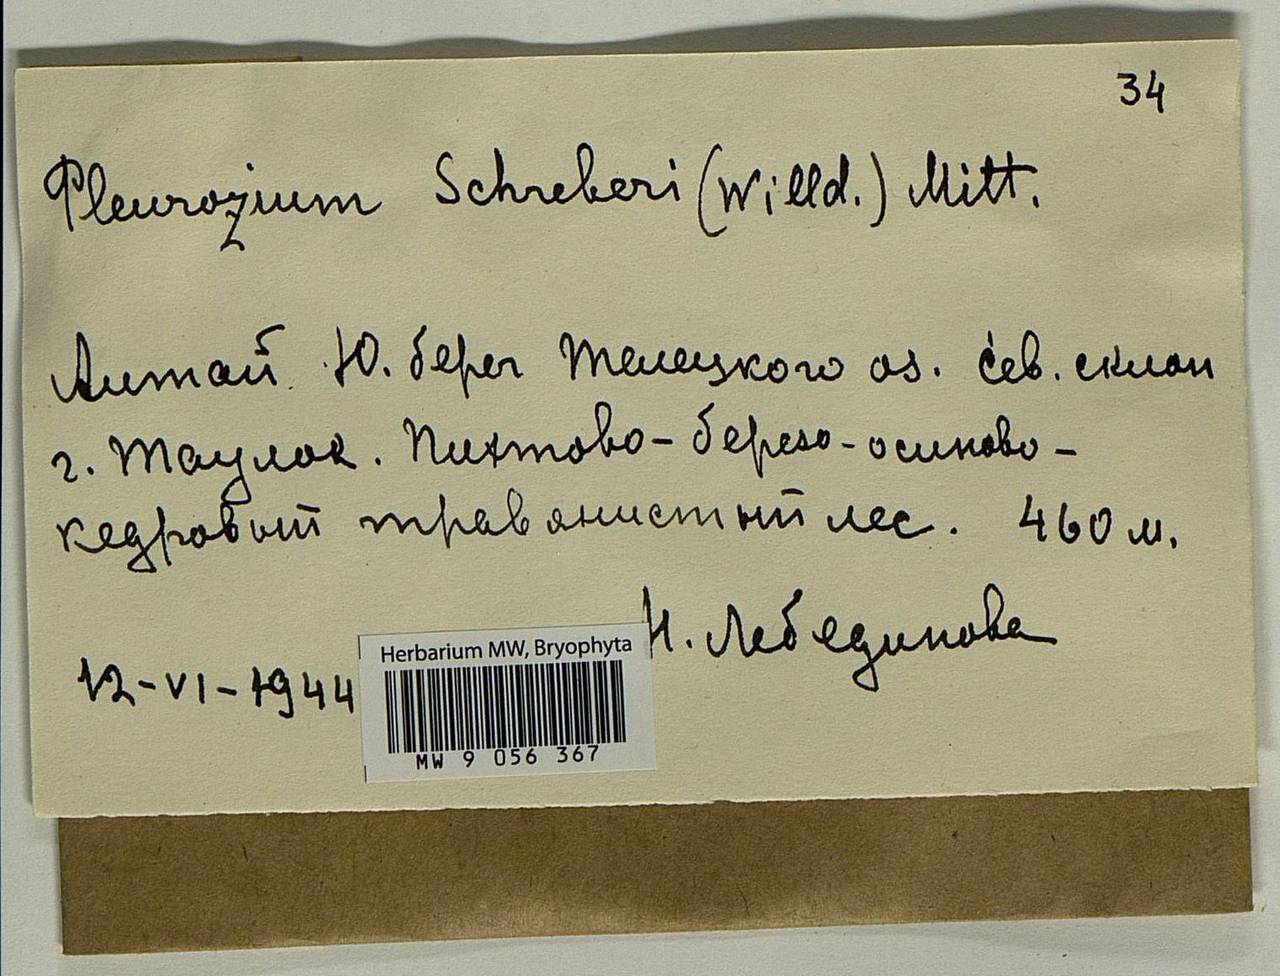 34
Pleurozium Schreberi (Willd.) Mitt.
Алтай. Ю. берег Телецкого оз. Сев. склон
г. Таулок. Пихтово-березо-осиново-
кедровый травянистый лес. 460 м.
Н. Лебединова
12-VI-1944
Herbarium MW, Bryophyta
MW 9 056 367